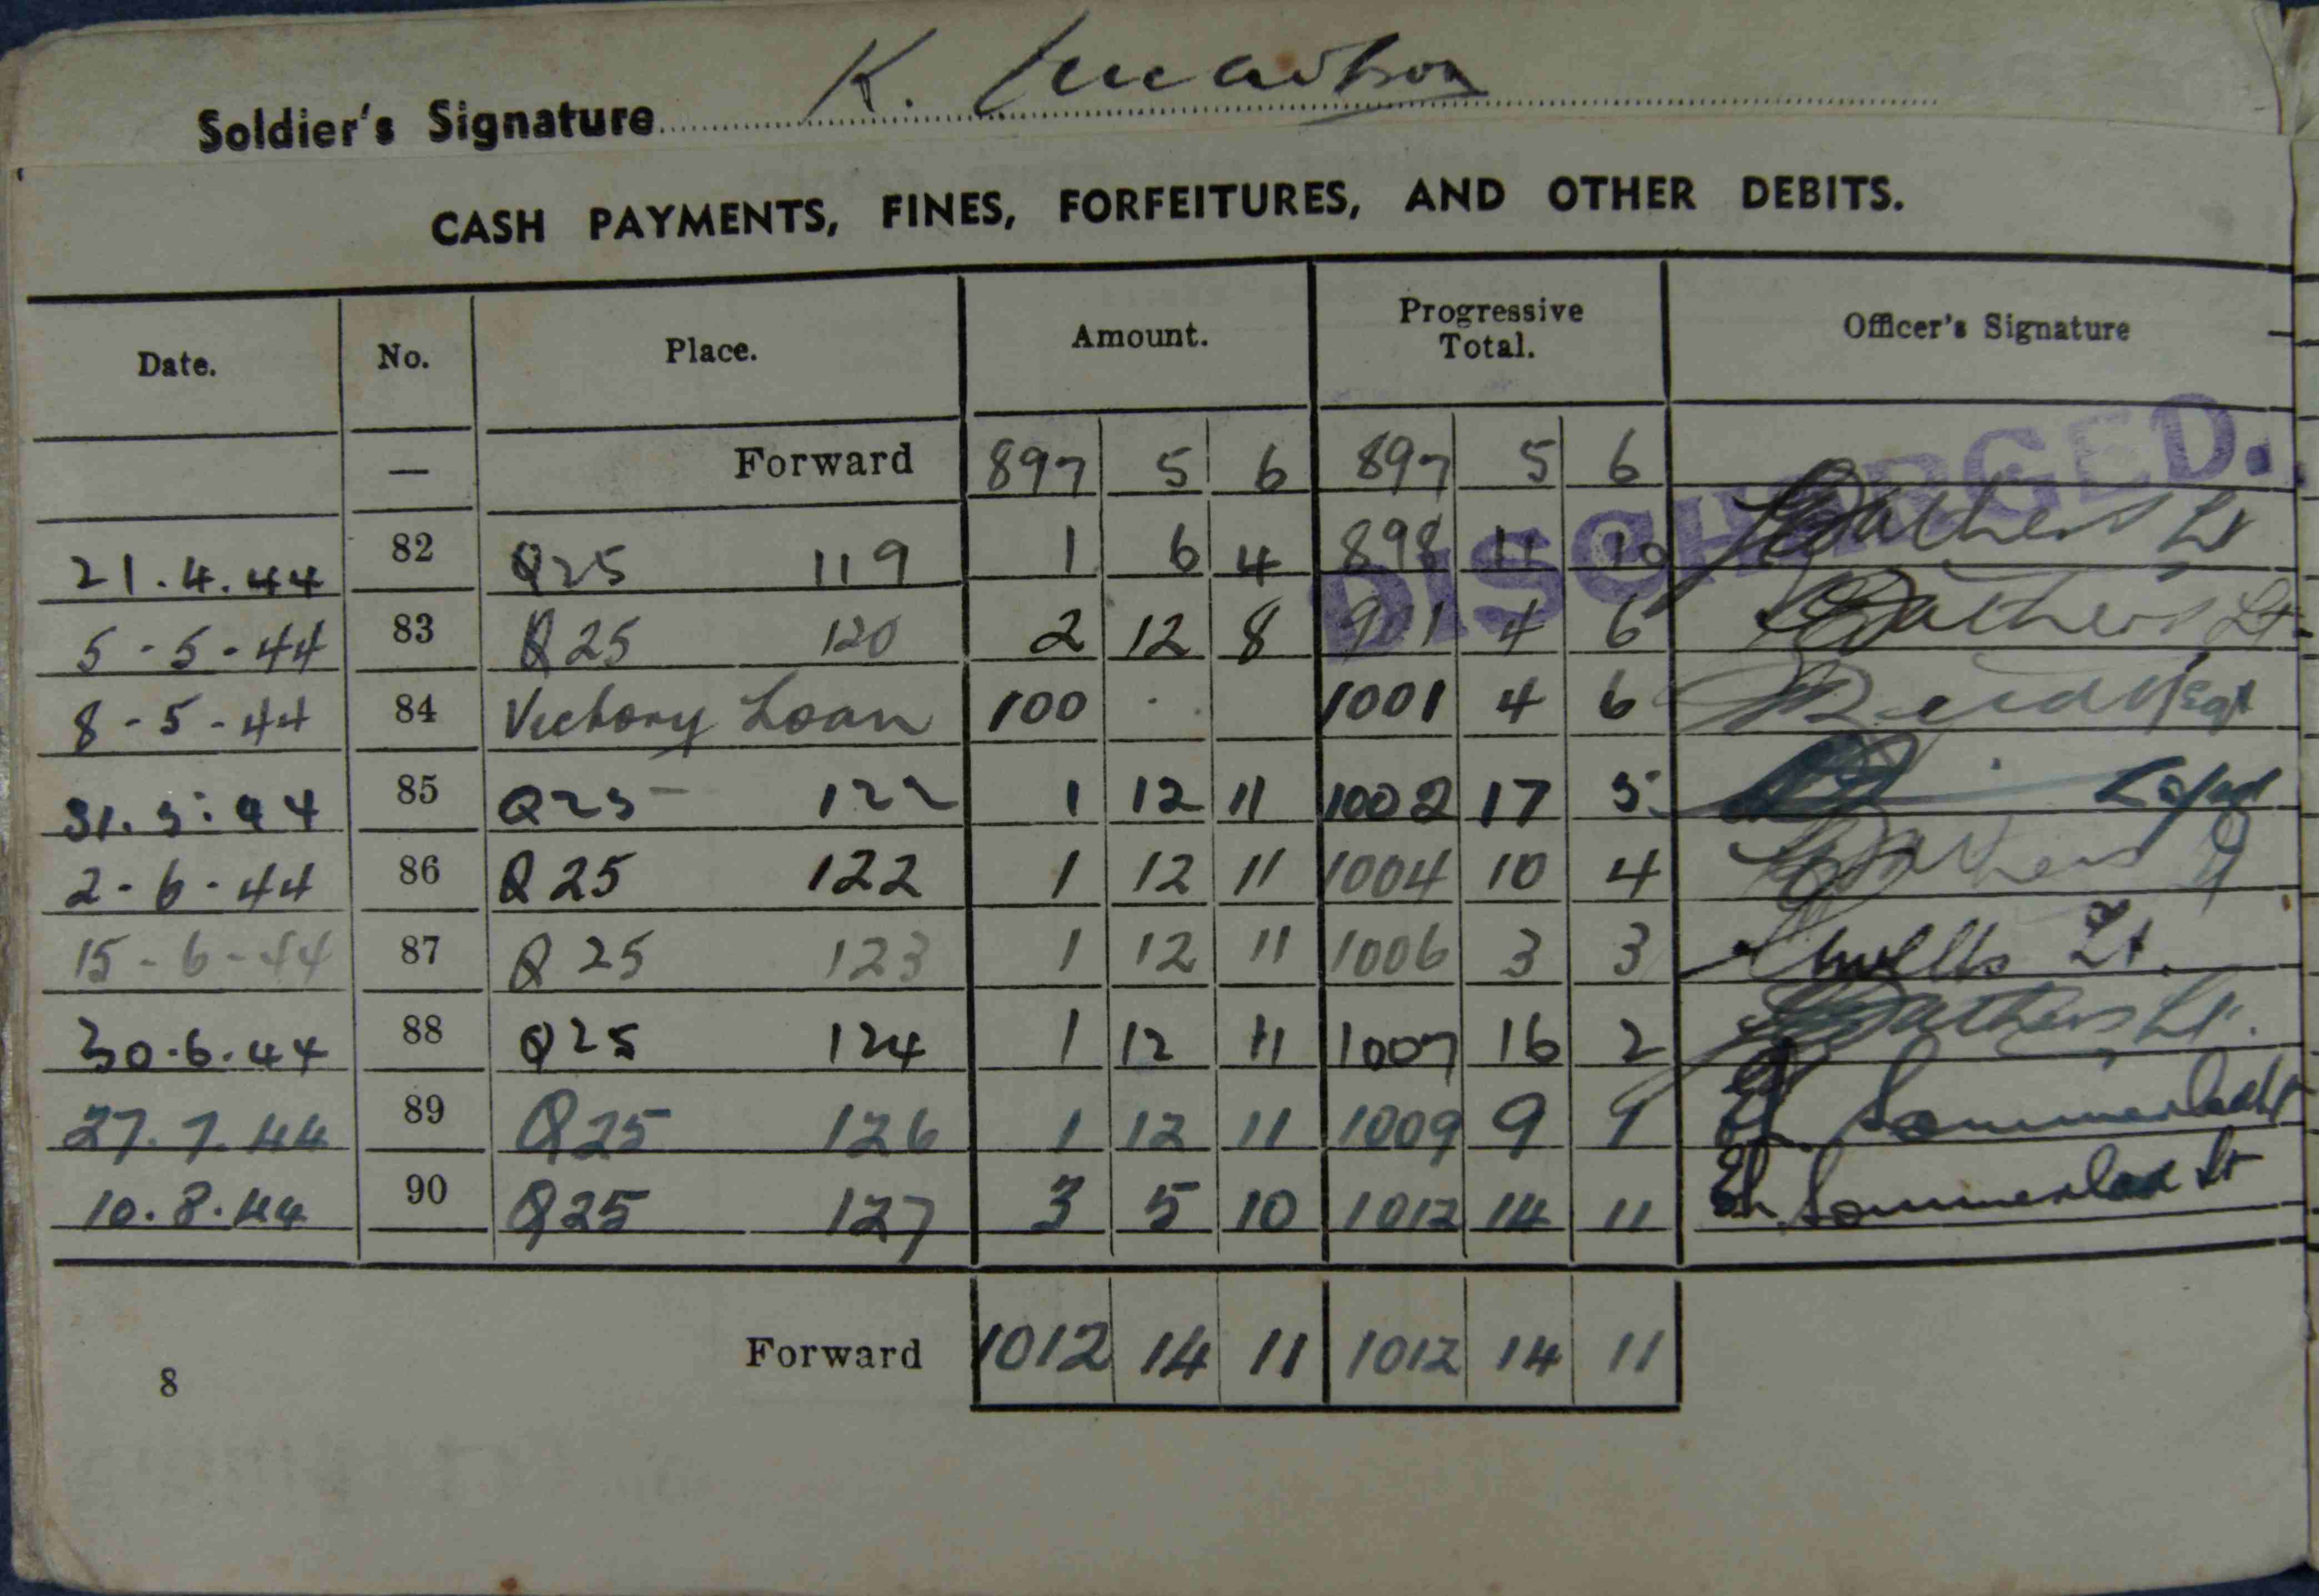 Soldier's Signature K.
CASH PAYMENTS, FINES, FORFEITURES, AND OTHER DEBITS.
Date. No. Place. Amount. Progressive Total. Officer's Signature
— Forward 897 5 6 897 5 6
DISCHARGED.
21.4.44 82 Q25 119 1 6 4 898 11 10 Lt
5-5-44 83 Q25 120 2 12 8 901 4 6 Lt.
8-5-44 84 Victory Loan 100 . . 1001 4 6
31.5.44 85 Q25 122 1 12 11 1002 17 5
2-6-44 86 Q25 122 1 12 11 1004 10 4
15-6-44 87 Q25 123 1 12 11 1006 3 3 Lt.
30.6.44 88 Q25 124 1 12 11 1007 16 2 Lt.
27.7.44 89 Q25 126 1 12 11 1009 9 1 Sommerlad Lt
10.8.44 90 Q25 127 3 5 10 1012 14 11 Sommerlad Lt
Forward 1012 14 11 1012 14 11
8